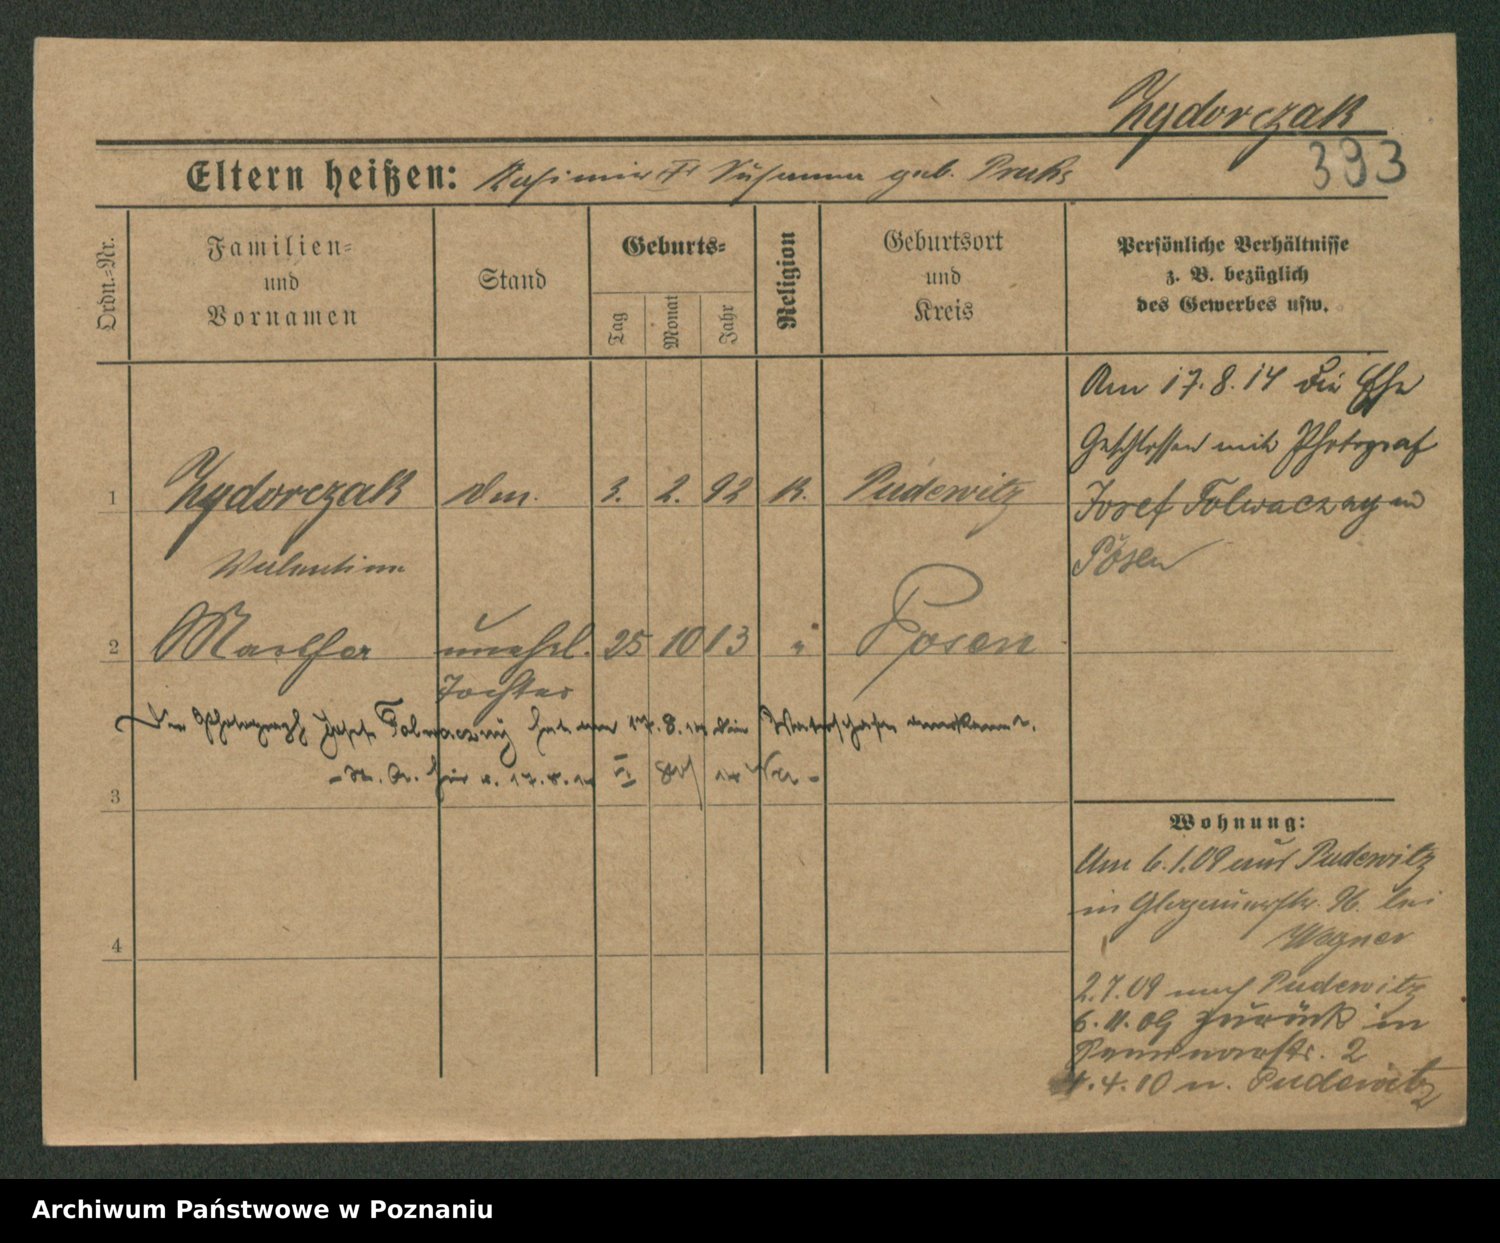 Zydorczak
393
Eltern heißen: Kasimir Susanna geb.
Ordn.=Nr.
Familien=
und
Vornamen
Stand
Geburts=
Tag
Monat
Jahr
Religion
Geburtsort
und
Kreis
Persönliche Verhältnisse
z. B. bezüglich
des Gewerbes usw.
Am 17.8.14 die Ehe
Geschlossen mit Photograf
Josef Tolwaczny in
Posen
1 Zydorczak 3. 2. 92 k. Pudewitz
Valentina
2 Martha unehel. 25 10 13 " Posen
Tochter
Der Photograph Josef Tolwaczny hat am 17.8.14 die Vaterschaft anerkannt.
3
4
Wohnung:
Am 6.1.09 aus Pudewitz
in Glogauerstr. 96. bei
Wegner
2.7.09 nach Pudewitz
6.11.09 zurück in
2
4.4.10 n. Pudewitz
Archiwum Państwowe w Poznaniu